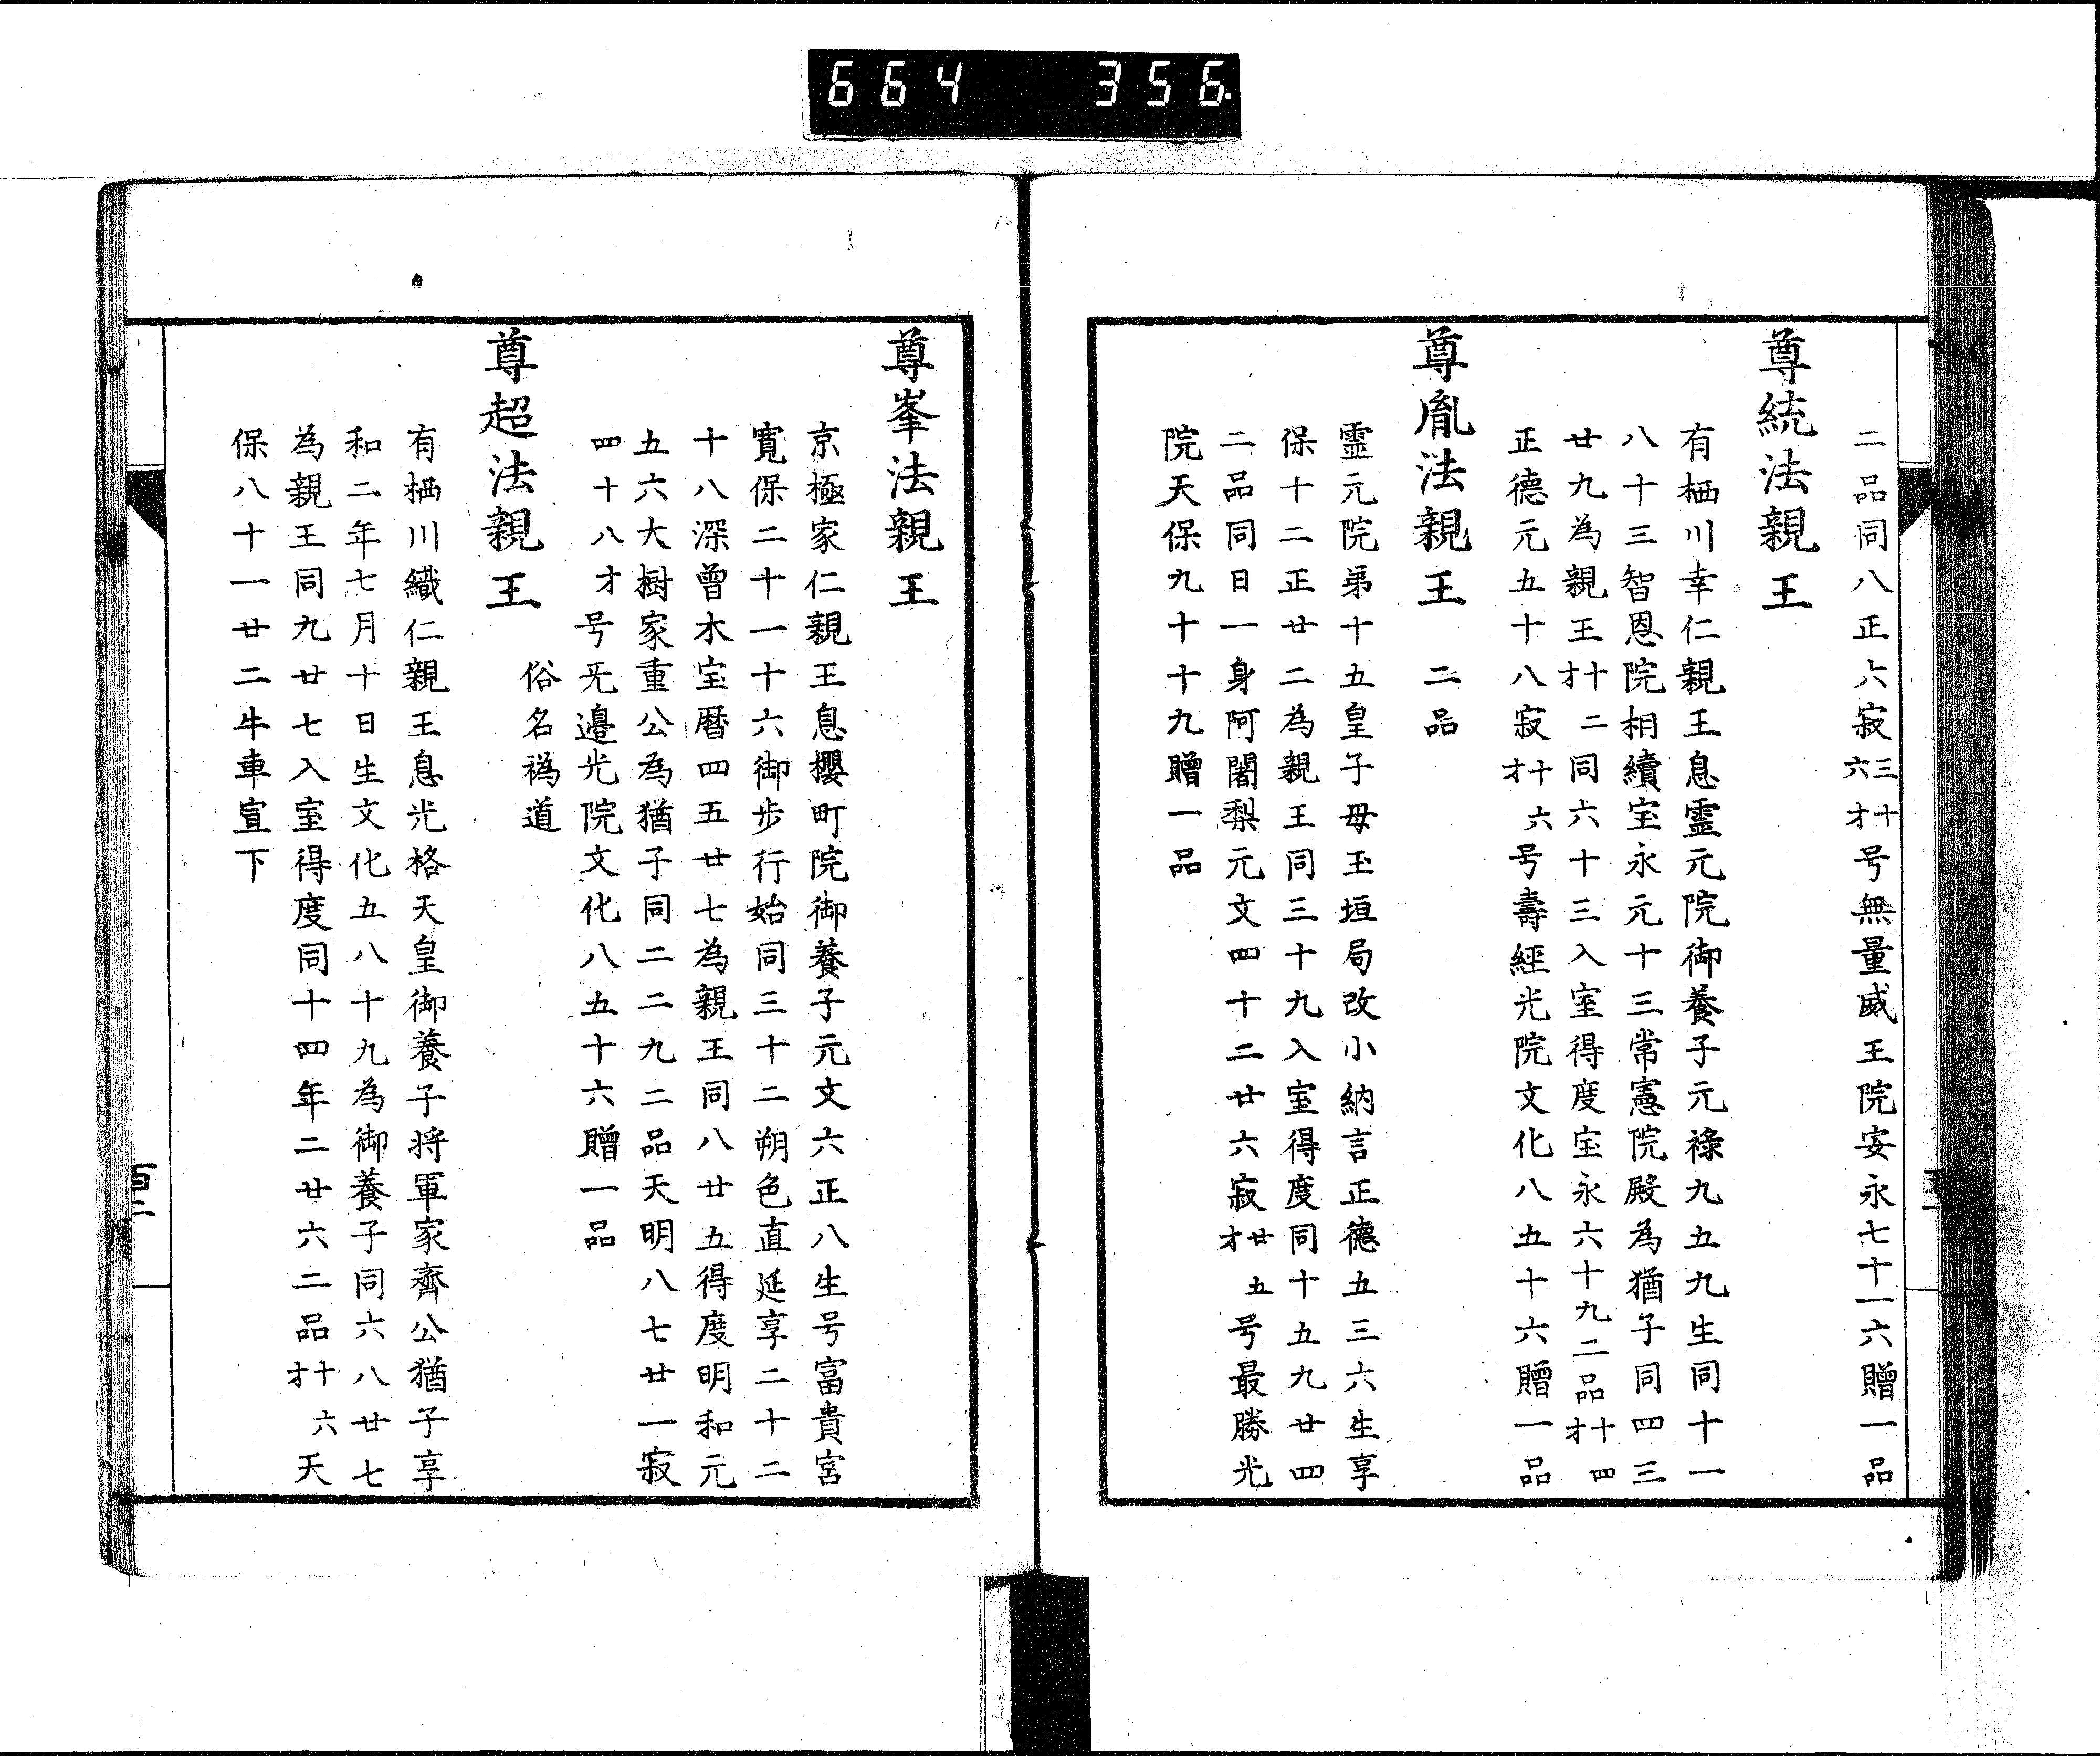 664 356
二品同八正六寂三十六才号無量威王院安永七十一六贈一品
尊統法親王
有栖川幸仁親王息霊元院御養子元禄九五九生同十一
八十三智恩院相續宝永元十三常憲院殿為猶子同四三
廿九為親王十二才同六十三入室得度宝永六十九二品十四才
正德元五十八寂十六才号壽經光院文化八五十六贈一品
尊胤法親王 二品
霊元院第十五皇子母玉垣局改小納言正德五三六生享
保十二正廿二為親王同三十九入室得度同十五九廿四
二品同日一身阿闍梨元文四十二廿六寂廿五才号最勝光
院天保九十十九贈一品
尊峯法親王
京極家仁親王息櫻町院御養子元文六正八生号富貴宮
寛保二十一十六御步行始同三十二朔色直延享二十二
十八深曾木宝暦四五廿七為親王同八廿五得度明和元
五六大樹家重公為猶子同二二九二品天明八七廿一寂
四十八才号无邊光院文化八五十六贈一品
尊超法親王 俗名褘道
有栖川織仁親王息光格天皇御養子将軍家齊公猶子享
和二年七月十日生文化五八十九為御養子同六八廿七
為親王同九廿七入室得度同十四年二廿六二品十六才天
保八十一廿二牛車宣下